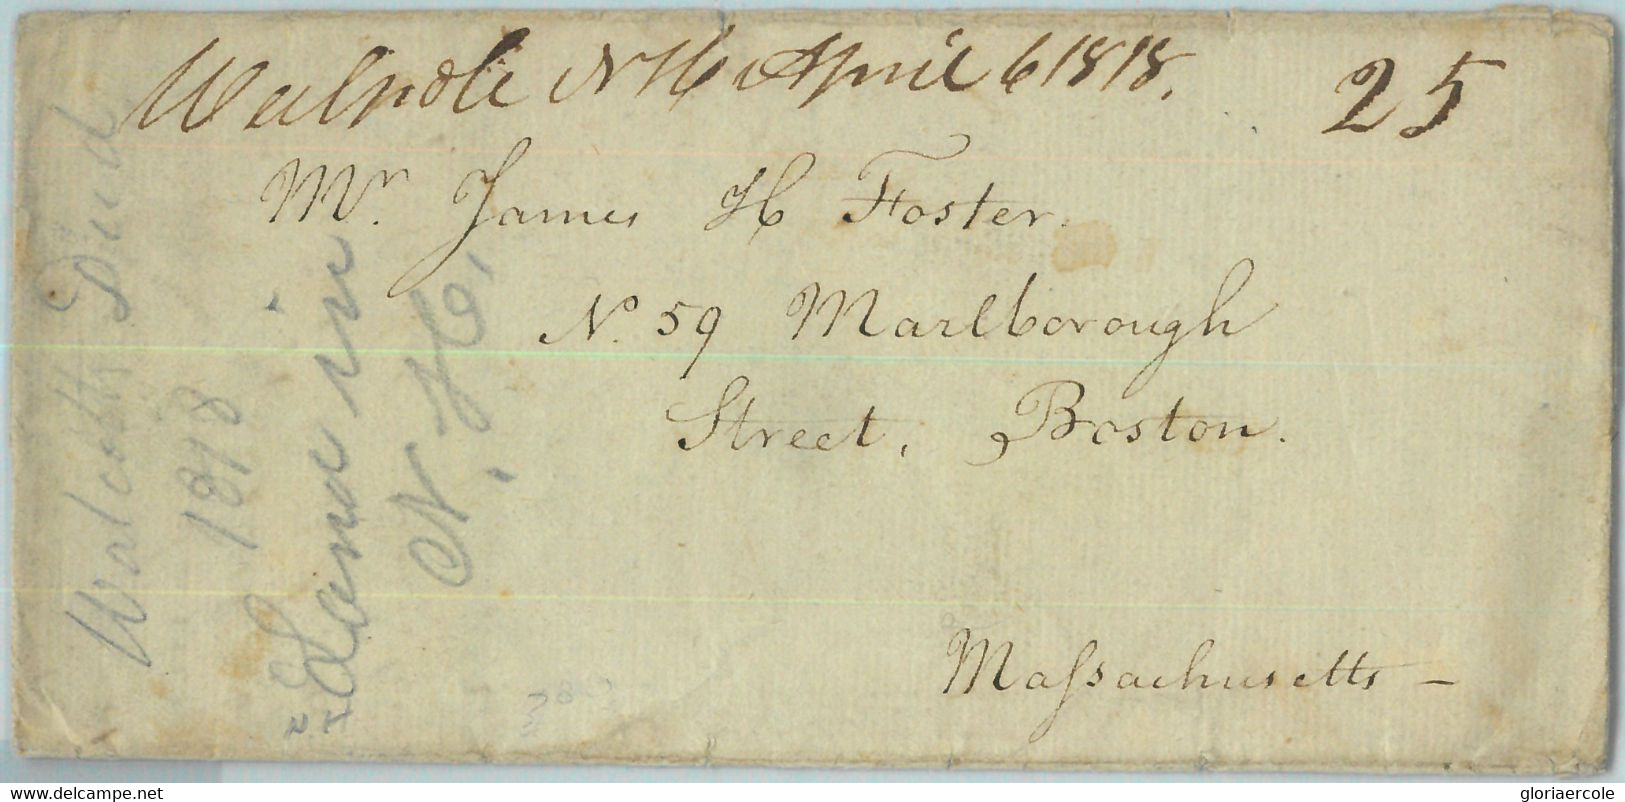 Walpole NH April 6 1818.
25
Mr. James H Foster.
No. 59 Marlborough
Street, Boston.
Maſsachusetts —
Walcott Deed
1818
"Land in
N. H.
delcampe.net
gloriaercole